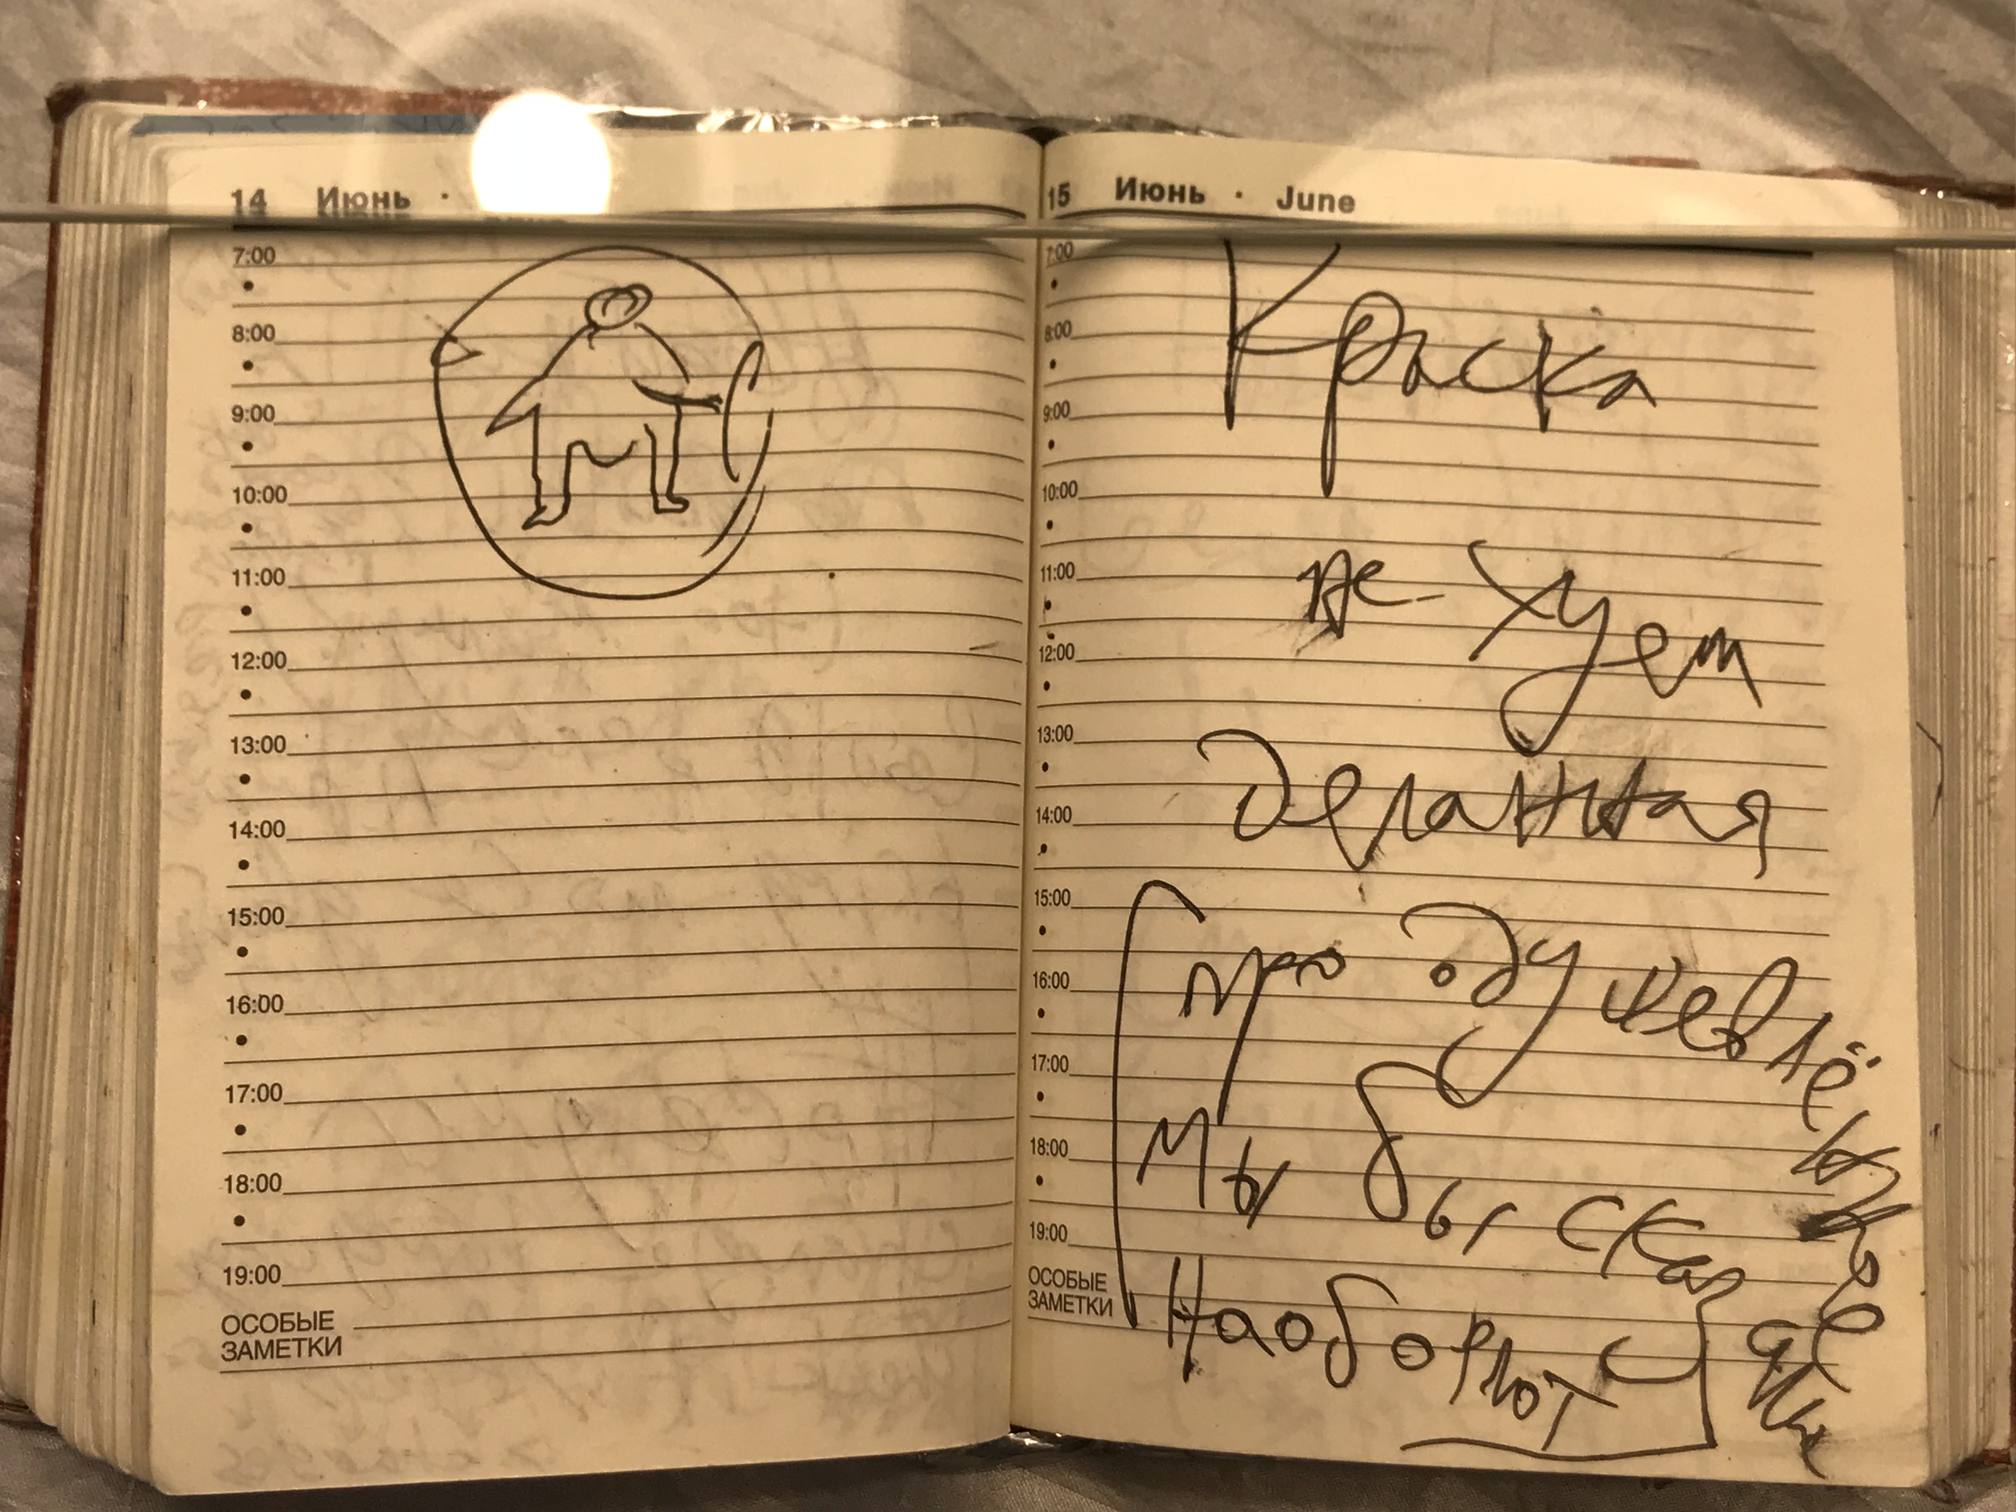 14 Июнь ·
7:00
8:00
9:00
10:00
11:00
12:00
13:00
14:00
15:00
16:00
17:00
18:00
19:00
ОСОБЫЕ
ЗАМЕТКИ
15 Июнь · June
7:00
8:00
9:00
10:00
11:00
12:00
13:00
14:00
15:00
16:00
17:00
18:00
19:00
ОСОБЫЕ
ЗАМЕТКИ
Краска
не- хуем
деланная
про одушевлённое
мы бы сказ
Наоборот